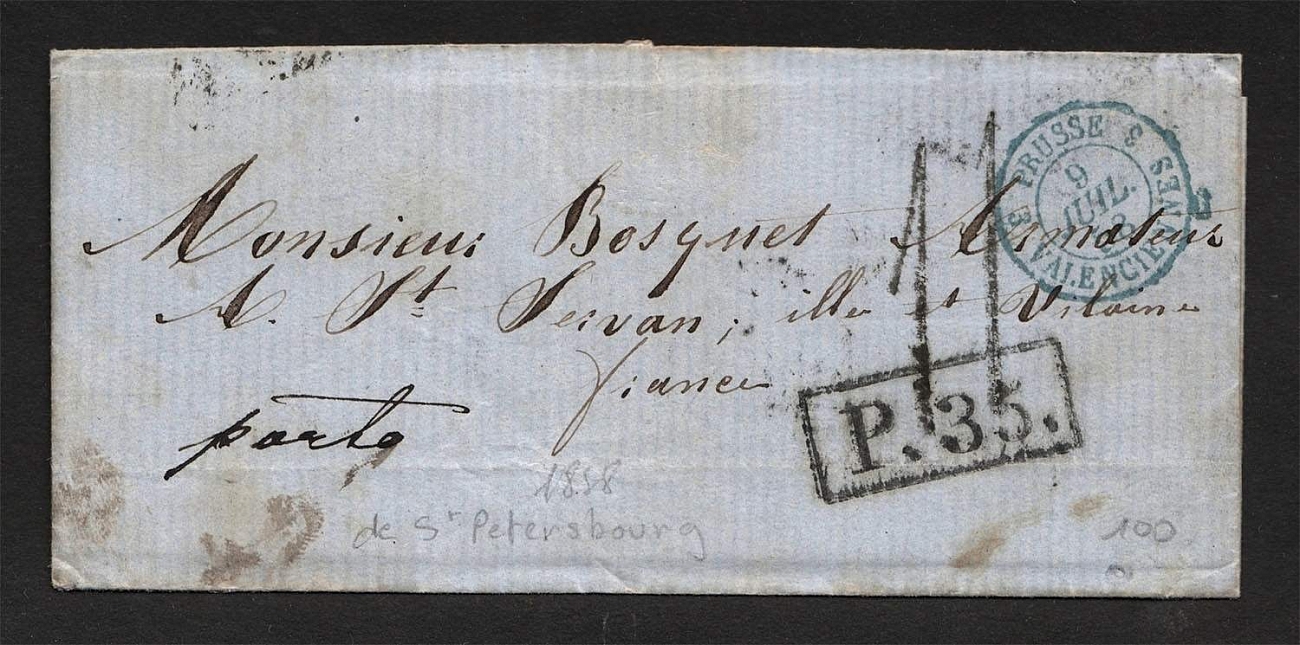 PRUSSE 3 VALENCIENNES 3
9
JUIL.
58
Monsieur Bosquet Armateur
A. St Servan, ille et Vilaine
france
P. 35.
porto
1858
de St Petersbourg
100